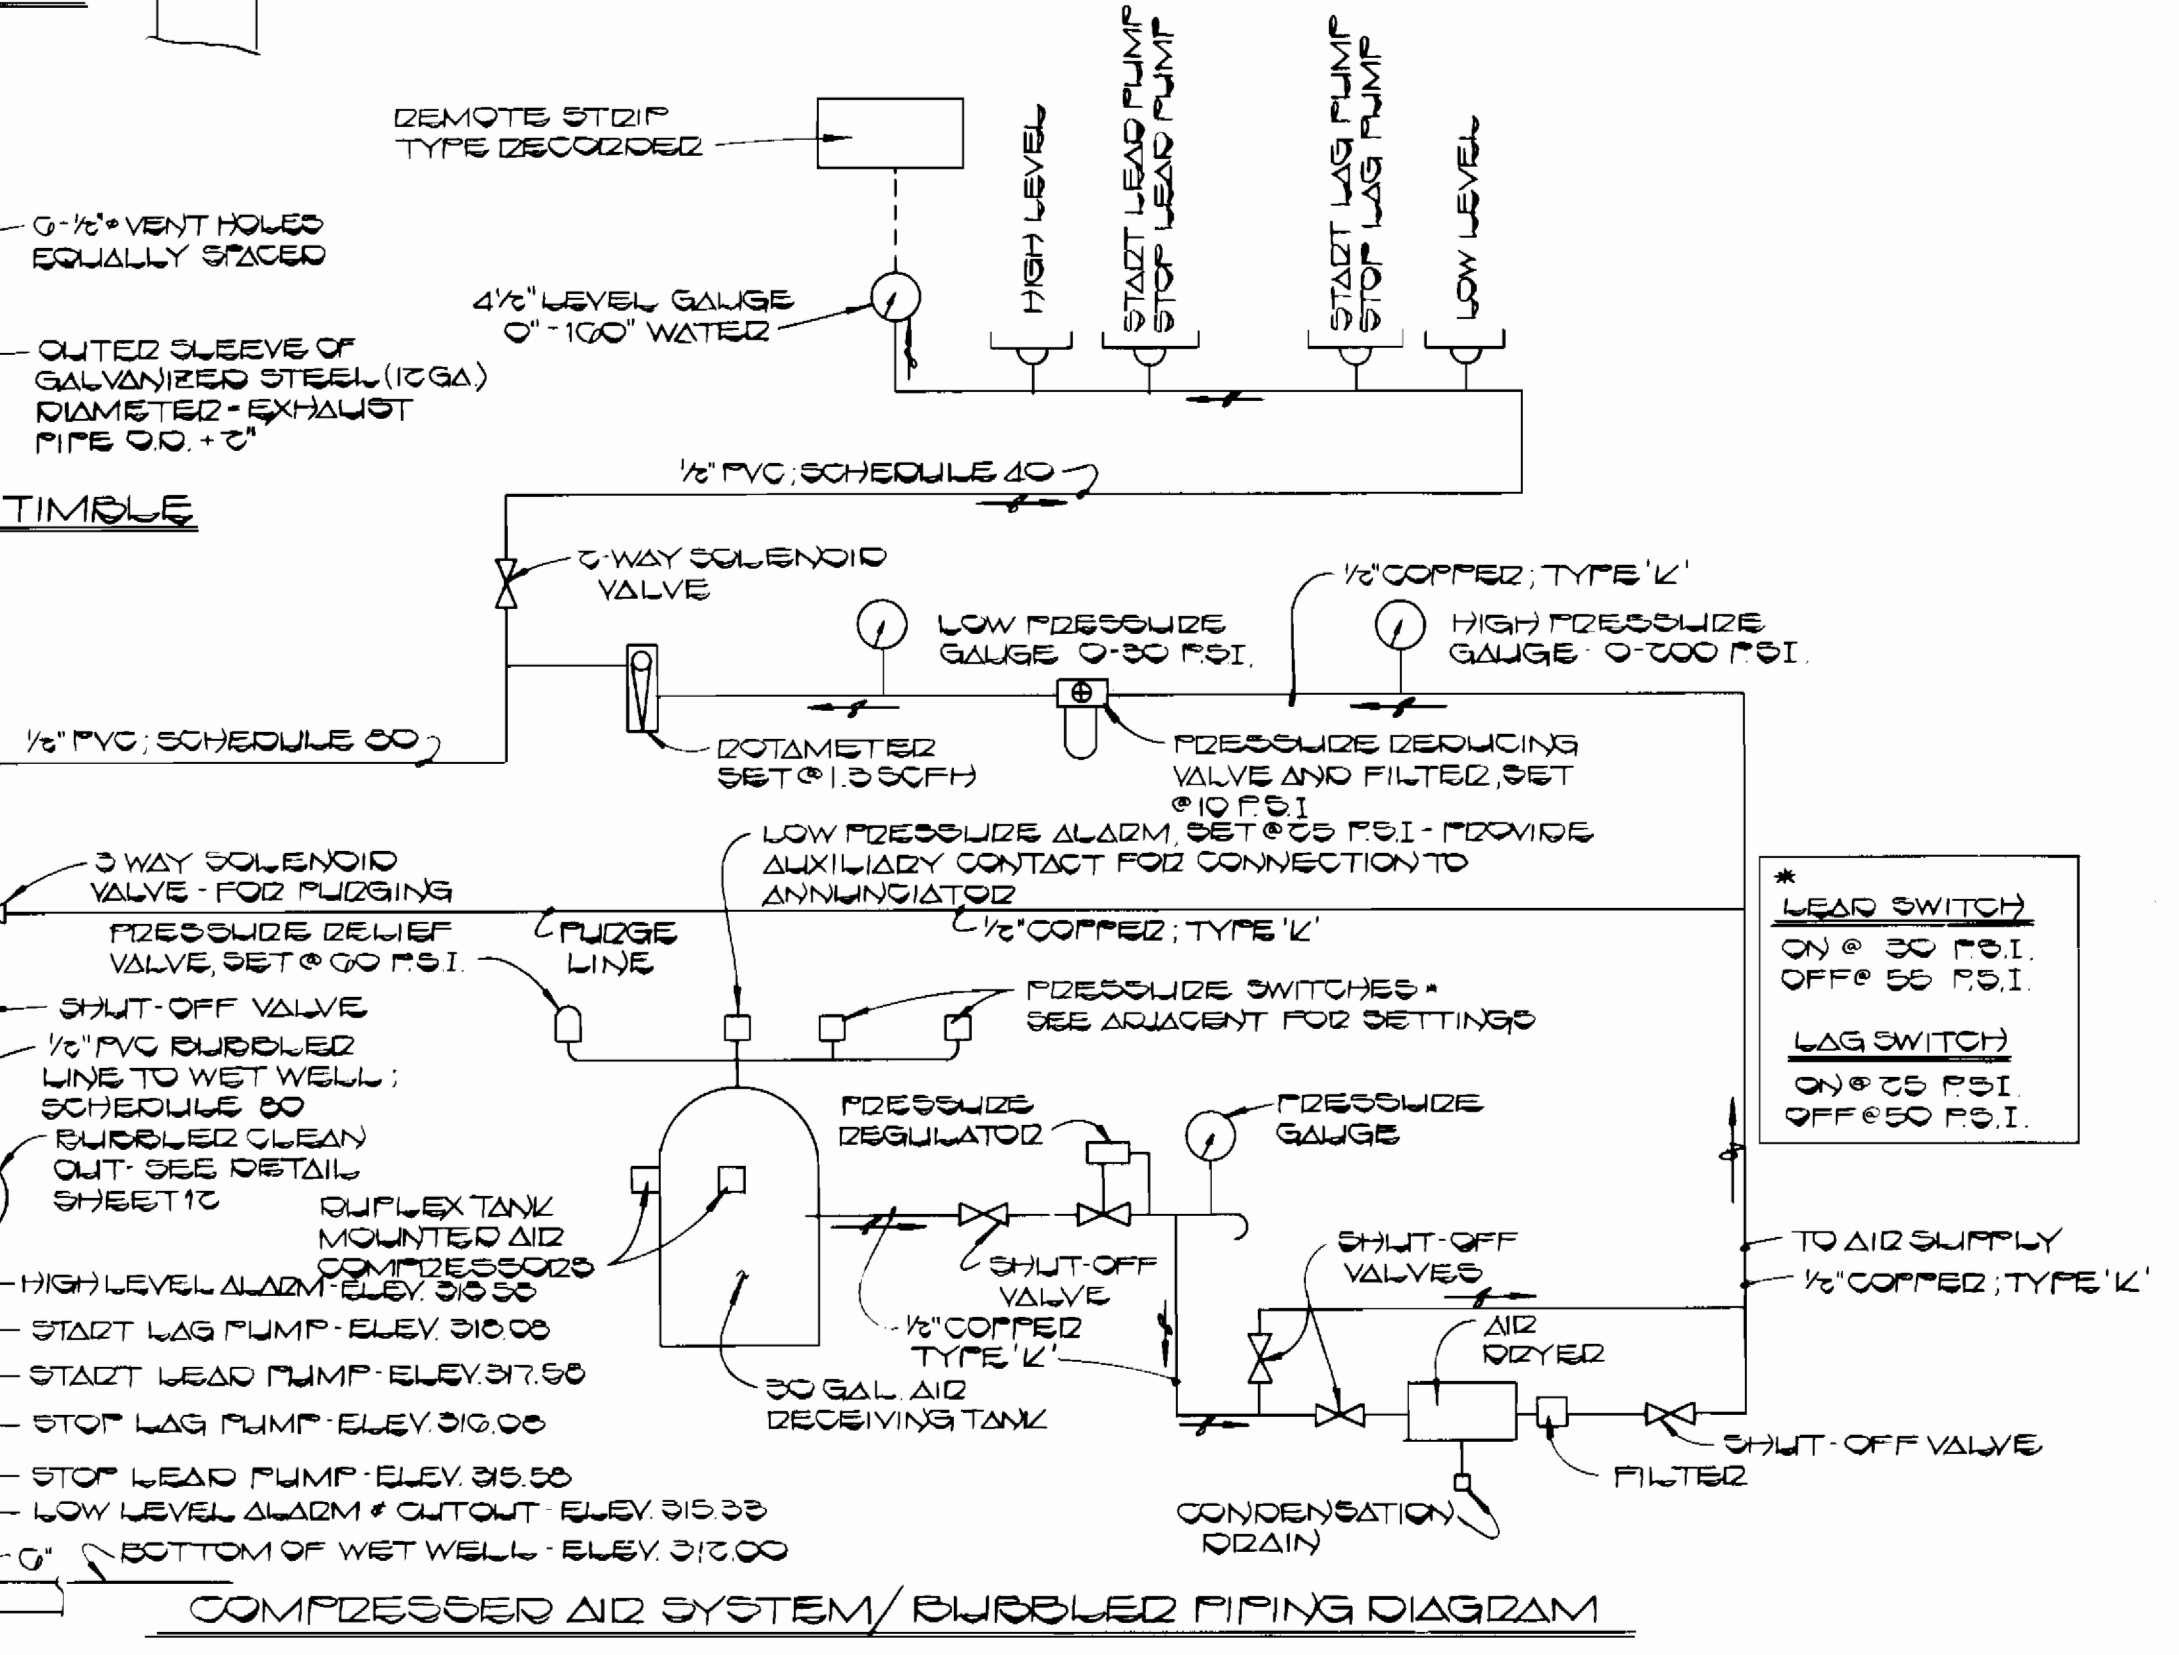 REMOTE STRIP
TYPE RECORDER
HIGH LEVEL
START LEAD PUMP
STOP LEAD PUMP
START LAG PUMP
STOP LAG PUMP
LOW LEVEL
6-1/2"ø VENT HOLES
EQUALLY SPACED
4 1/2" LEVEL GAUGE
0"-160" WATER
OUTER SLEEVE OF
GALVANIZED STEEL (12 GA.)
DIAMETER - EXHAUST
PIPE O.D. + 2"
1/2" PVC; SCHEDULE 40
TIMBLE
2-WAY SOLENOID
VALVE
1/2" COPPER; TYPE 'K'
LOW PRESSURE
GAUGE 0-30 P.S.I.
HIGH PRESSURE
GAUGE - 0-200 P.S.I.
1/2" PVC; SCHEDULE 80
ROTAMETER
SET @ 1.3 SCFH
PRESSURE REDUCING
VALVE AND FILTER, SET
@ 10 P.S.I
LOW PRESSURE ALARM, SET @ 25 P.S.I - PROVIDE
AUXILIARY CONTACT FOR CONNECTION TO
ANNUNCIATOR
3 WAY SOLENOID
VALVE - FOR PURGING
PURGE
LINE
1/2" COPPER; TYPE 'K'
PRESSURE RELIEF
VALVE, SET @ 60 P.S.I.
*
LEAD SWITCH
ON @ 30 P.S.I.
OFF @ 55 P.S.I.
LAG SWITCH
ON @ 25 P.S.I.
OFF @ 50 P.S.I.
SHUT-OFF VALVE
PRESSURE SWITCHES *
SEE ADJACENT FOR SETTINGS
1/2" PVC BUBBLER
LINE TO WET WELL;
SCHEDULE 80
BUBBLER CLEAN
OUT - SEE DETAIL
SHEET 12
PRESSURE
REGULATOR
PRESSURE
GAUGE
DUPLEX TANK
MOUNTED AIR
COMPRESSORS
SHUT-OFF
VALVE
SHUT-OFF
VALVES
TO AIR SUPPLY
1/2" COPPER; TYPE 'K'
1/2" COPPER
TYPE 'K'
AIR
DRYER
30 GAL. AIR
RECEIVING TANK
SHUT-OFF VALVE
FILTER
CONDENSATION
DRAIN
HIGH LEVEL ALARM - ELEV. 318.58
START LAG PUMP - ELEV. 318.08
START LEAD PUMP - ELEV. 317.58
STOP LAG PUMP - ELEV. 316.08
STOP LEAD PUMP - ELEV. 315.58
LOW LEVEL ALARM & CUTOUT - ELEV. 315.33
6" BOTTOM OF WET WELL - ELEV. 312.00
COMPRESSED AIR SYSTEM/BUBBLER PIPING DIAGRAM